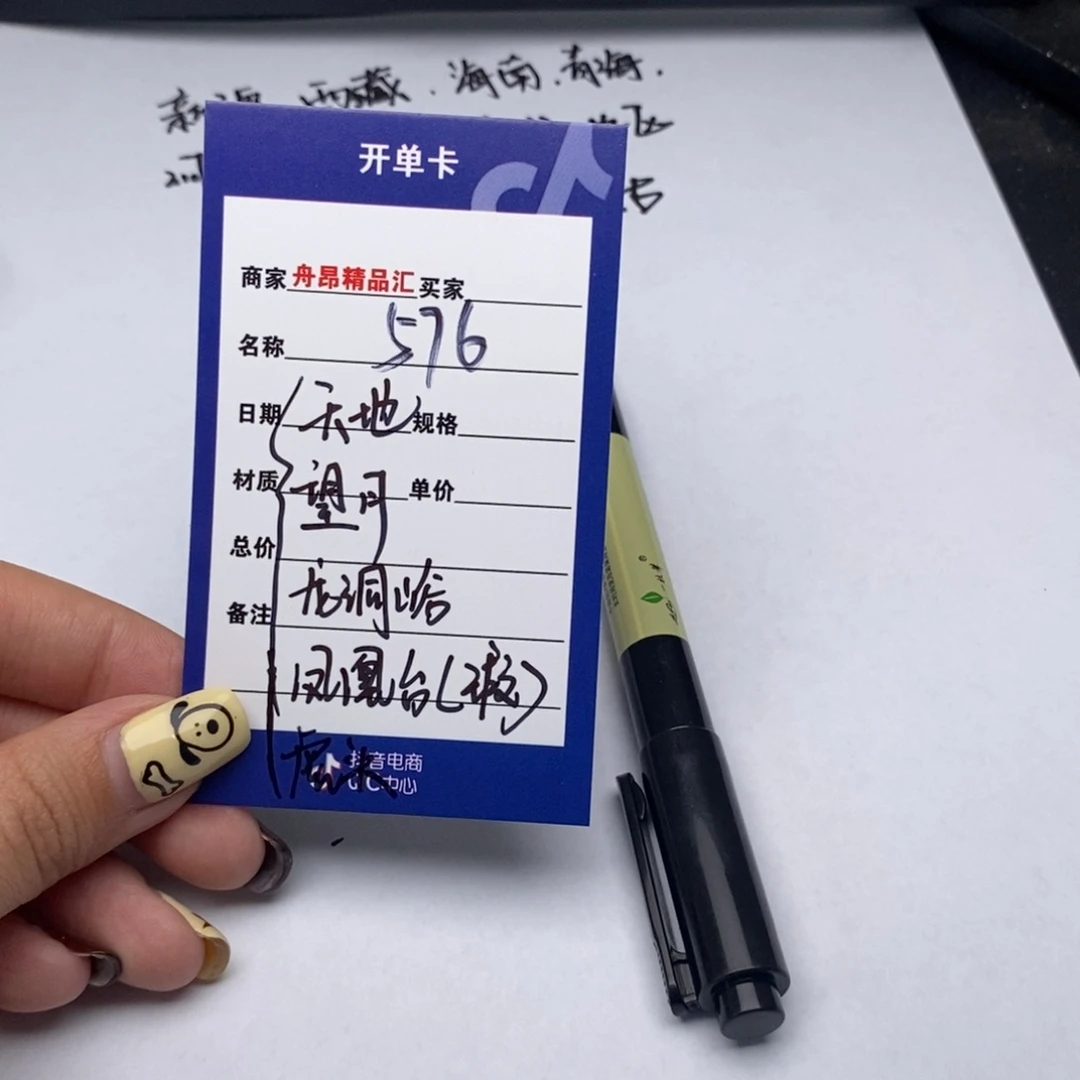 新疆、西藏、海南、青海.
开单卡
商家 舟昂精品汇 买家
名称 576
日期 天地 规格
材质 望月 单价
总价
备注 龙洞峪
凤凰台(2款)
虎头
抖音电商
QIC中心